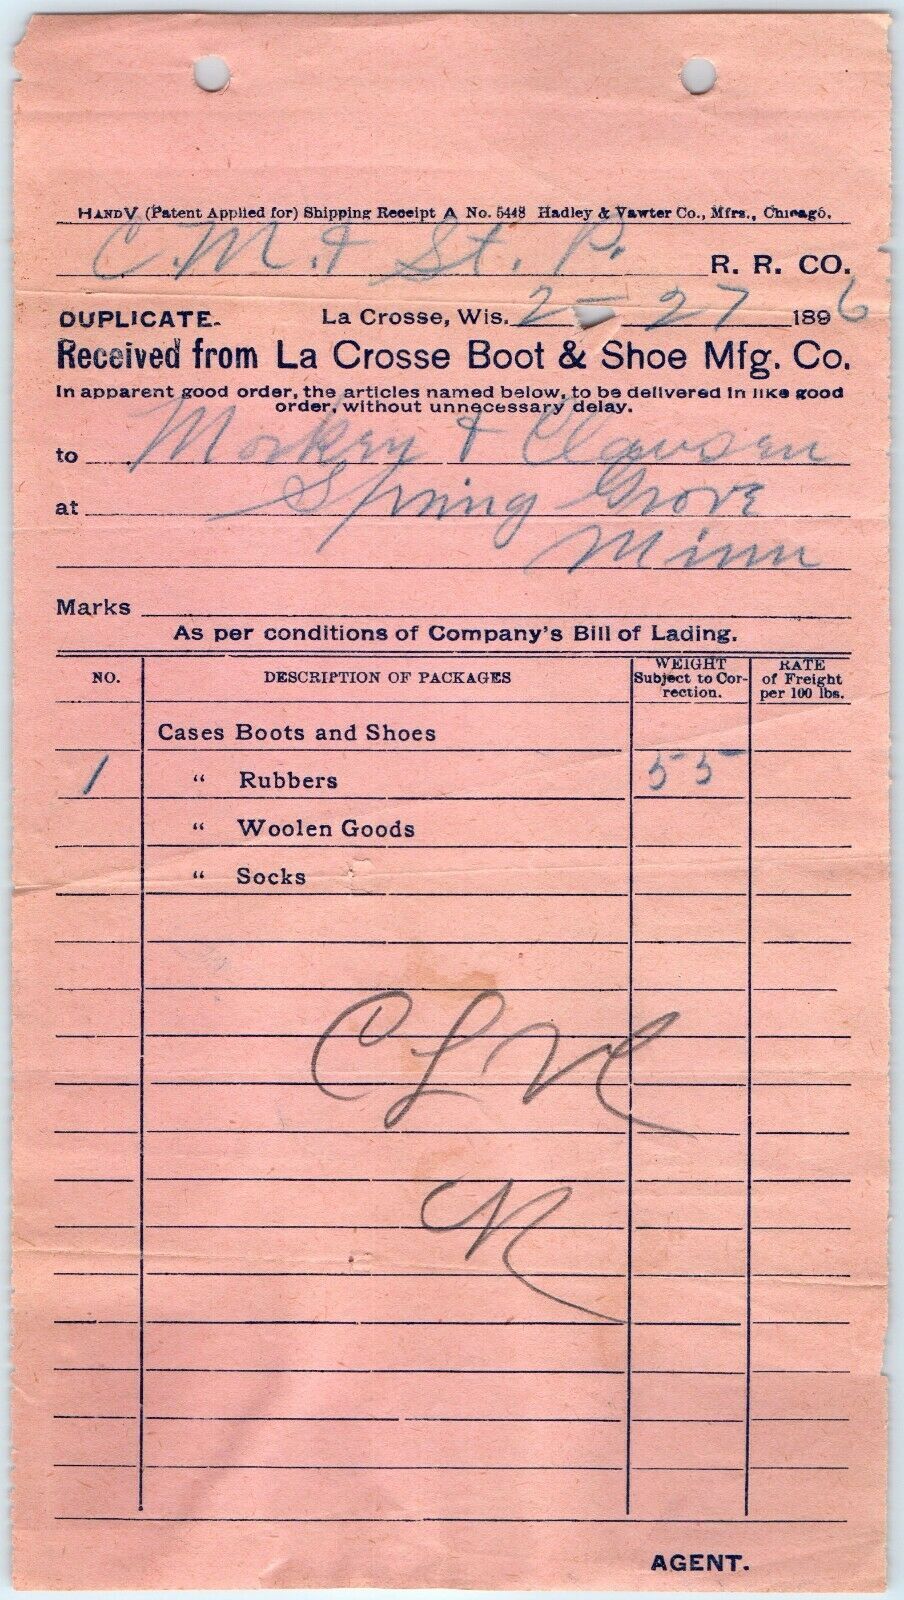 HANDY (Patent Applied for) Shipping Receipt A No. 5448 Hadley & Vawter Co., Mfrs., Chicago.
C. M. & St. P. R. R. CO.
DUPLICATE. La Crosse, Wis. 2 - 27 1896
Received from La Crosse Boot & Shoe Mfg. Co.
In apparent good order, the articles named below, to be delivered in like good
order, without unnecessary delay.
to & Clawsen
at Spring Grove
Minn
Marks
As per conditions of Company's Bill of Lading.
NO. DESCRIPTION OF PACKAGES WEIGHT Subject to Correction. RATE of Freight per 100 lbs.
Cases Boots and Shoes
1 " Rubbers 55
" Woolen Goods
" Socks
AGENT.